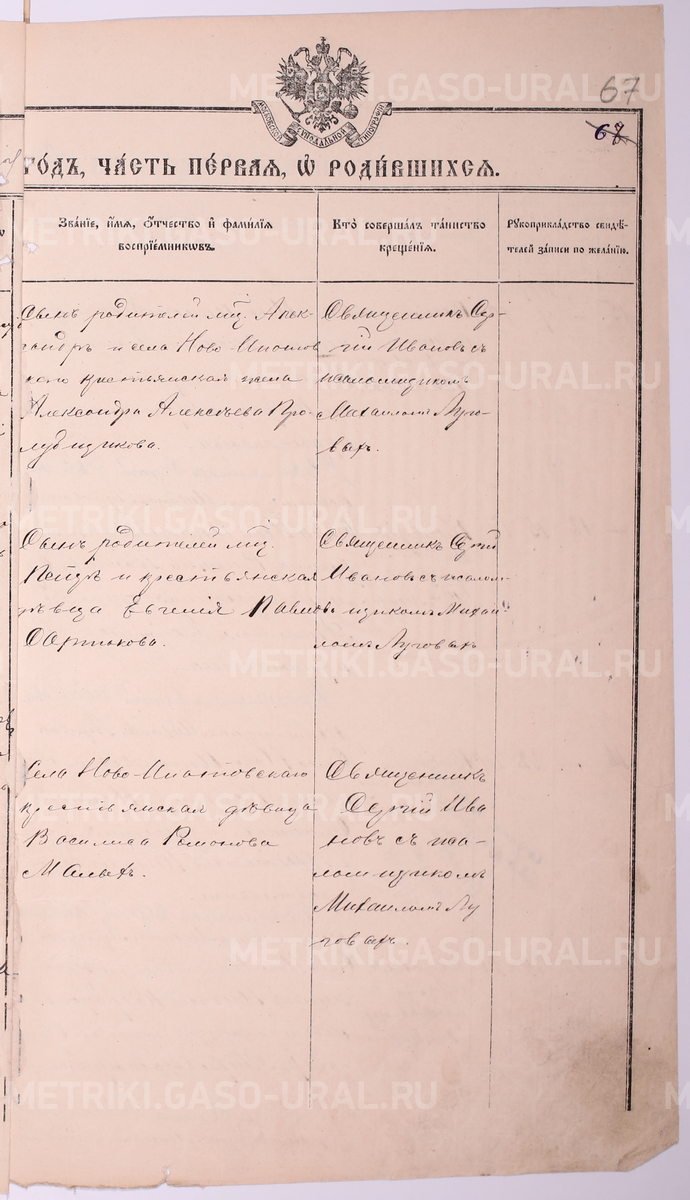 67
68
МОСКОВСКОЙ СѴНОДАЛЬНОЙ ТИПОГРАФІИ
ГОДЪ, ЧАСТЬ ПЕРВАЯ, Ѡ РОДИВШИХСЯ.
Званіе, имя, отчество и фамилія
воспріемниковъ.
Кто совершалъ таинство
крещенія.
Рукоприкладство свидѣ-
телей записи по желанію.
Сынъ родителей Алек-
сандръ и села Ново-Ипатов
скаго крестьянская жена
Александра Алексѣева Про-
лубщикова.
Священникъ Сер-
гій Ивановъ съ
псаломщикомъ
Михаиломъ Луго-
выхъ.
Сынъ родителей
Петръ и крестьянская
дѣвица Евгенія Павлова
Священникъ Сергій
Ивановъ съ псалом-
щикомъ Михаи-
ломъ Луговыхъ
Села Ново-Ипатовскаго
крестьянская дѣвица
Василиса Романова
Малыхъ.
Священникъ
Сергій Ива
новъ съ пса-
ломщикомъ
Михаиломъ Лу
говыхъ.
METRIKI.GASO-URAL.RU